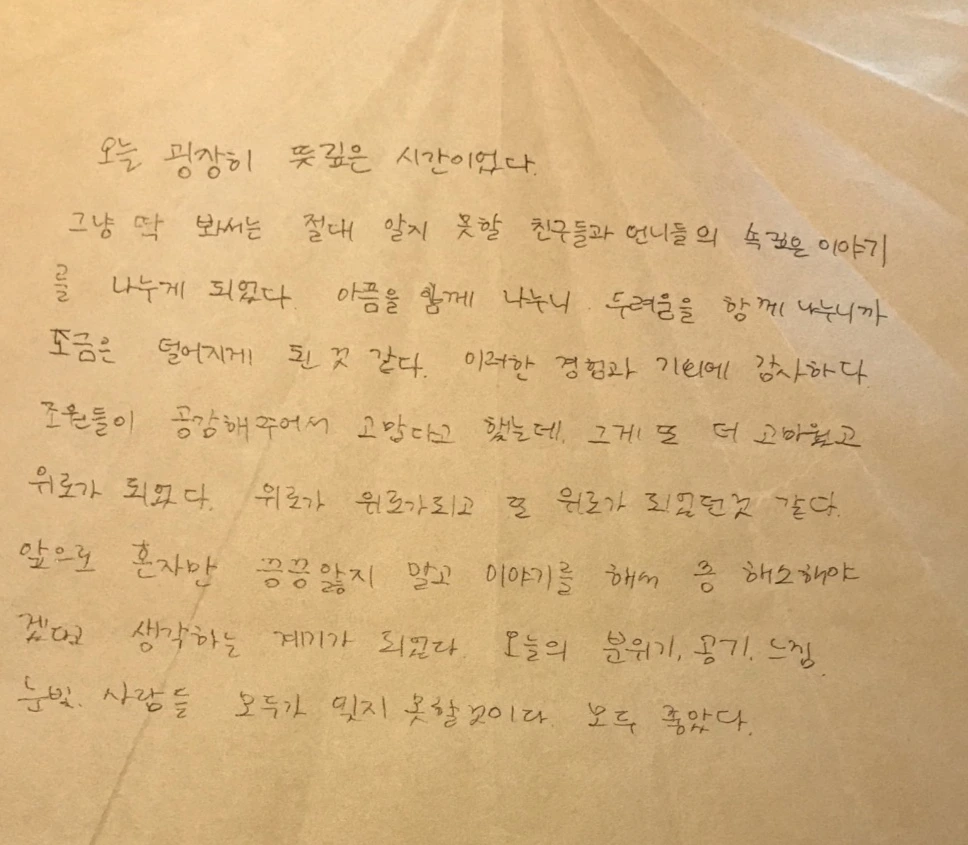 오늘 굉장히 뜻깊은 시간이었다.
그냥 딱 봐서는 절대 알지 못할 친구들과 언니들의 속깊은 이야기
를 나누게 되었다. 아픔을 함께 나누니. 두려움을 함께 나누니까
조금은 덜어지게 된 것 같다. 이러한 경험과 기회에 감사하다.
조원들이 공감해주어서 고맙다고 했는데, 그게 또 더 고마웠고
위로가 되었다. 위로가 위로가되고 또 위로가 되었던것 같다.
앞으로 혼자만 끙끙앓지 말고 이야기를 해서 좀 해소해야
겠다고 생각하는 계기가 되었다. 오늘의 분위기, 공기, 느낌,
눈빛, 사람들 모두가 잊지 못할것이다. 모두 좋았다.